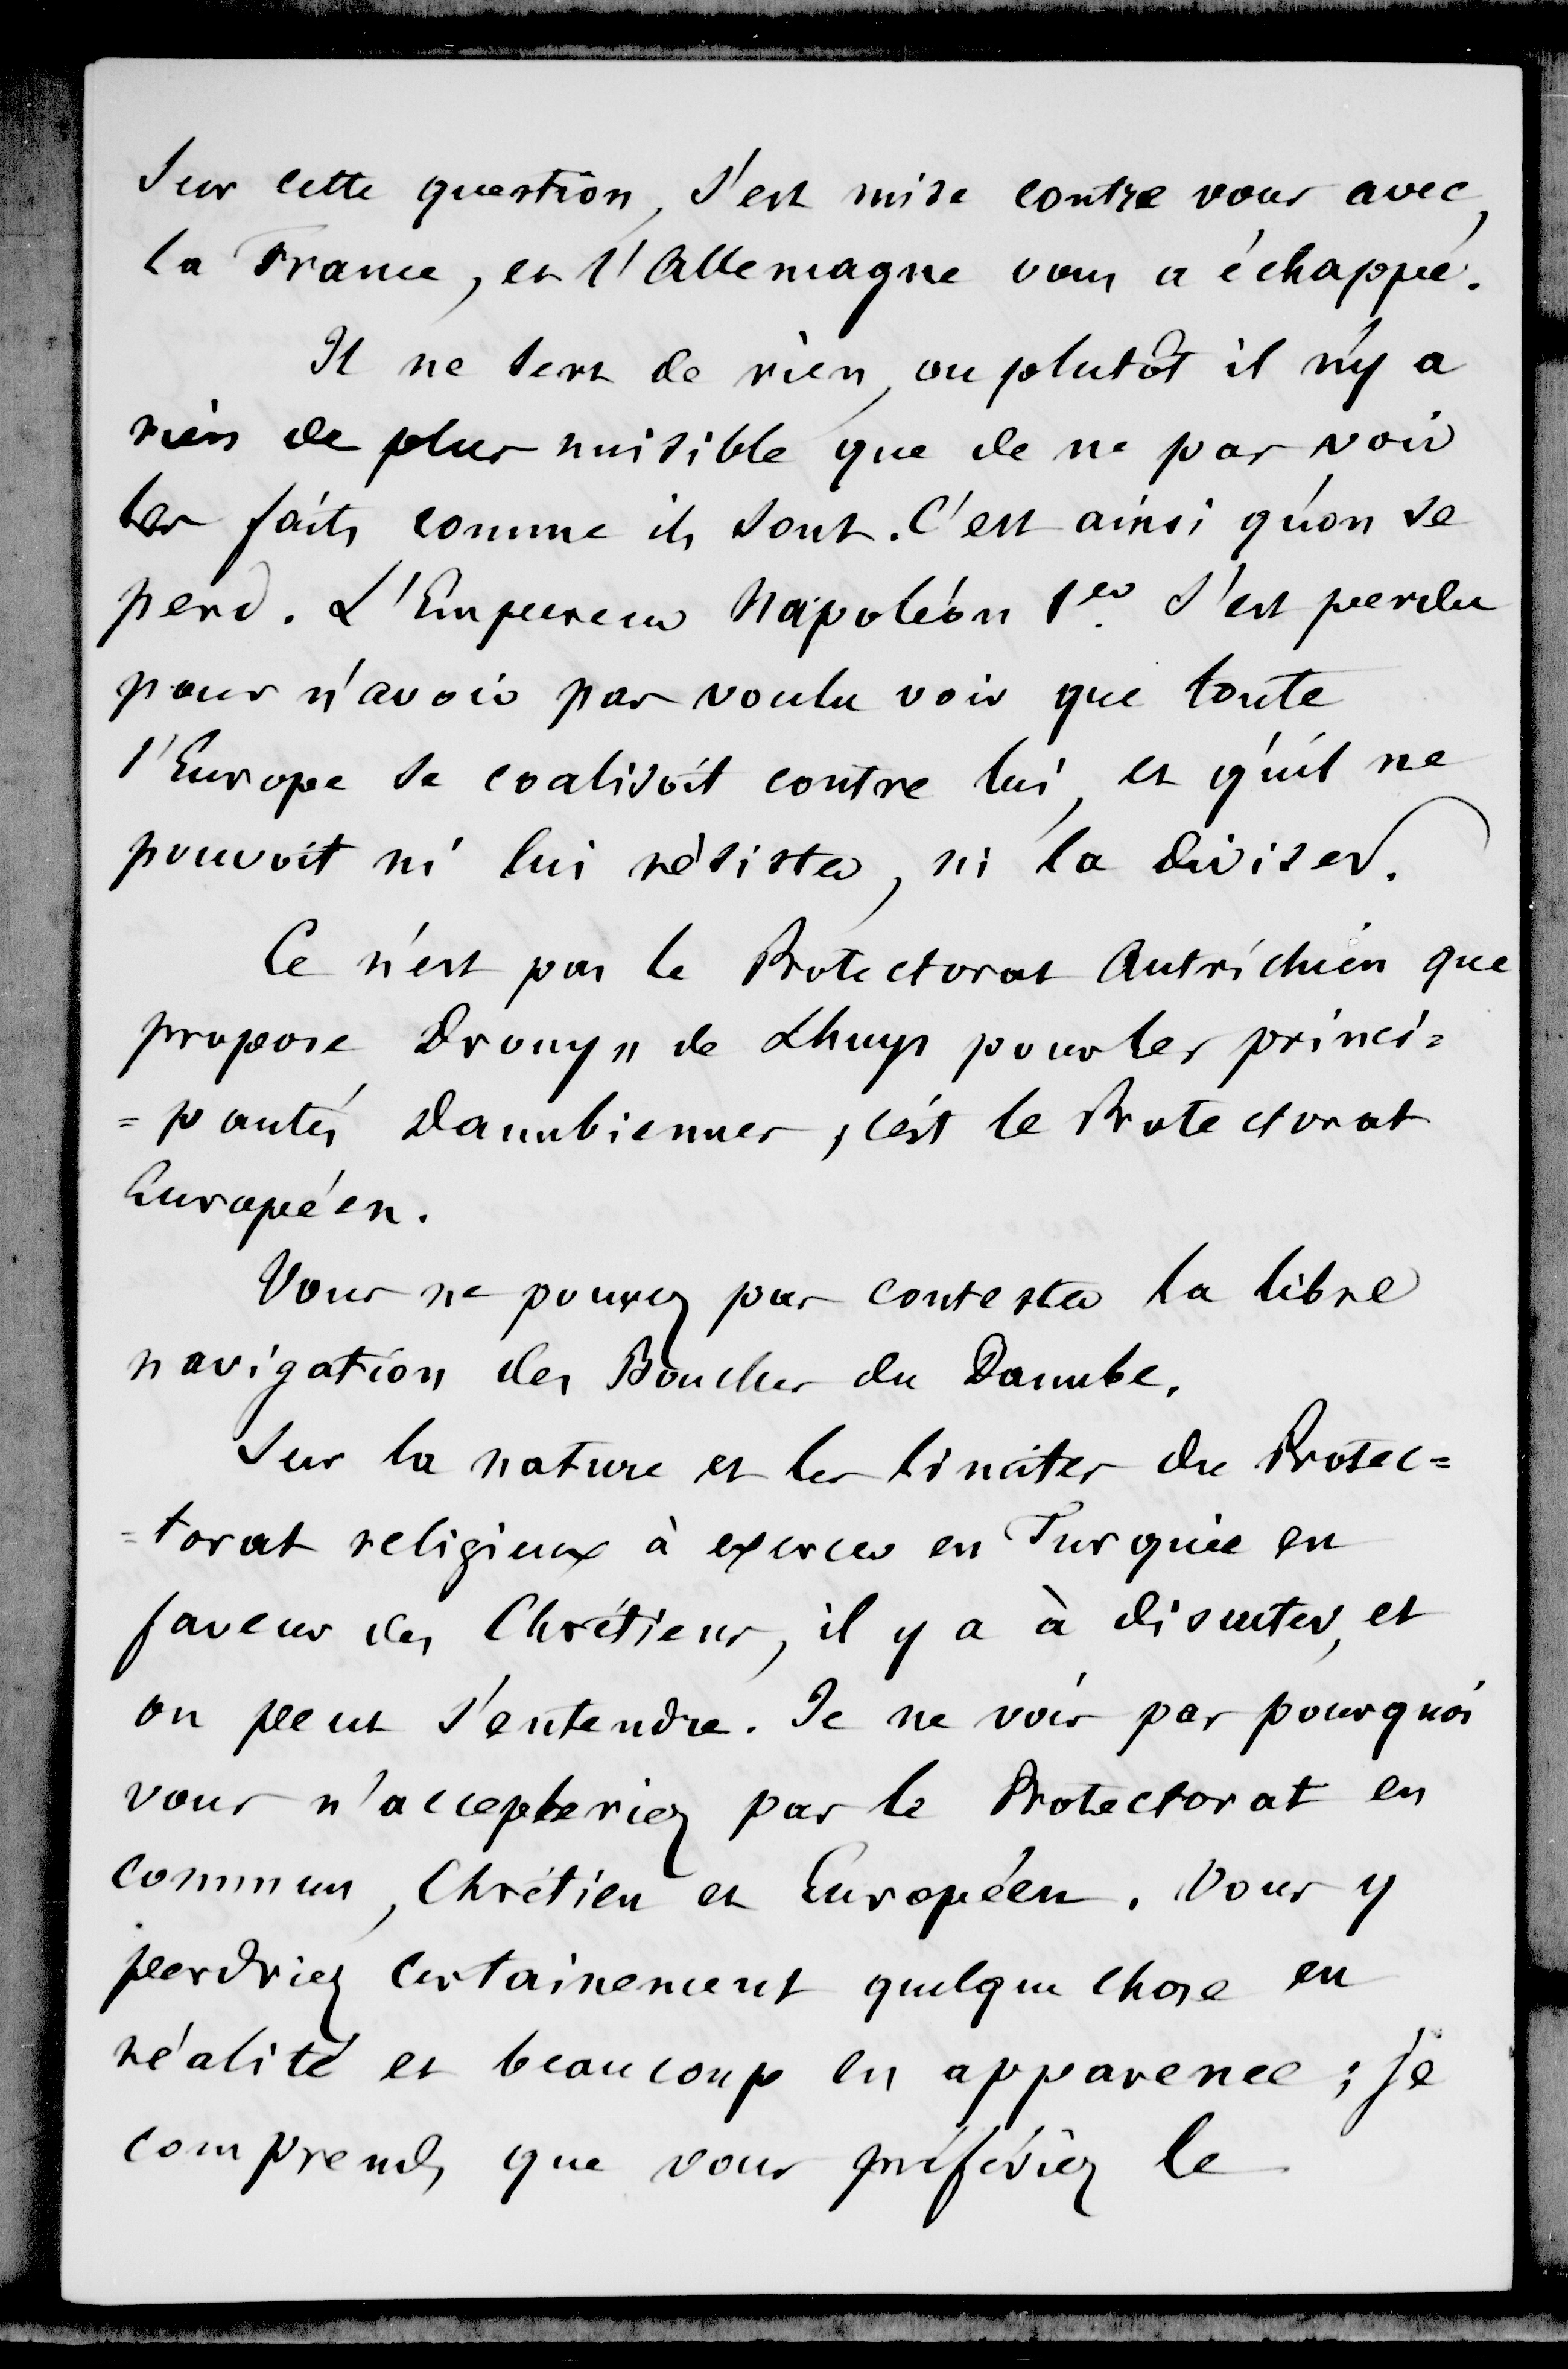 Sur cette question, s'est mise contre vous avec
la France, et l'Allemagne vous a échappé.
Il ne sert de rien, ou plutôt il n'y a
rien de plus nuisible que de ne pas voir
les faits comme ils sont. C'est ainsi qu'on se
perd. L'Empereur Napoléon 1er s'est perdu
pour n'avoir pas voulu voir que toute
l'Europe se coalisoit contre lui, et qu'il ne
pouvoit ni lui résister, ni la diviser.
Ce n'est pas le Protectorat Autrichien que
propose Drouyn de Lhuys pour les princi=
=pautés Danubiennes, c'est le Protectorat
Européen.
Vous ne pouvez pas contester la libre
navigation des Bouches du Danube.
Sur la nature et les limites du Protec=
=torat religieux à exercer en Turquie en
faveur des Chrétiens, il y a à discuter, et
on peut s'entendre. Je ne vois pas pourquoi
vous n'accepteriez pas le Protectorat en
commun, Chrétien et Européen. Vous y
perdriez certainement quelque chose en
réalité et beaucoup en apparence ; je
comprends que vous préfériez le